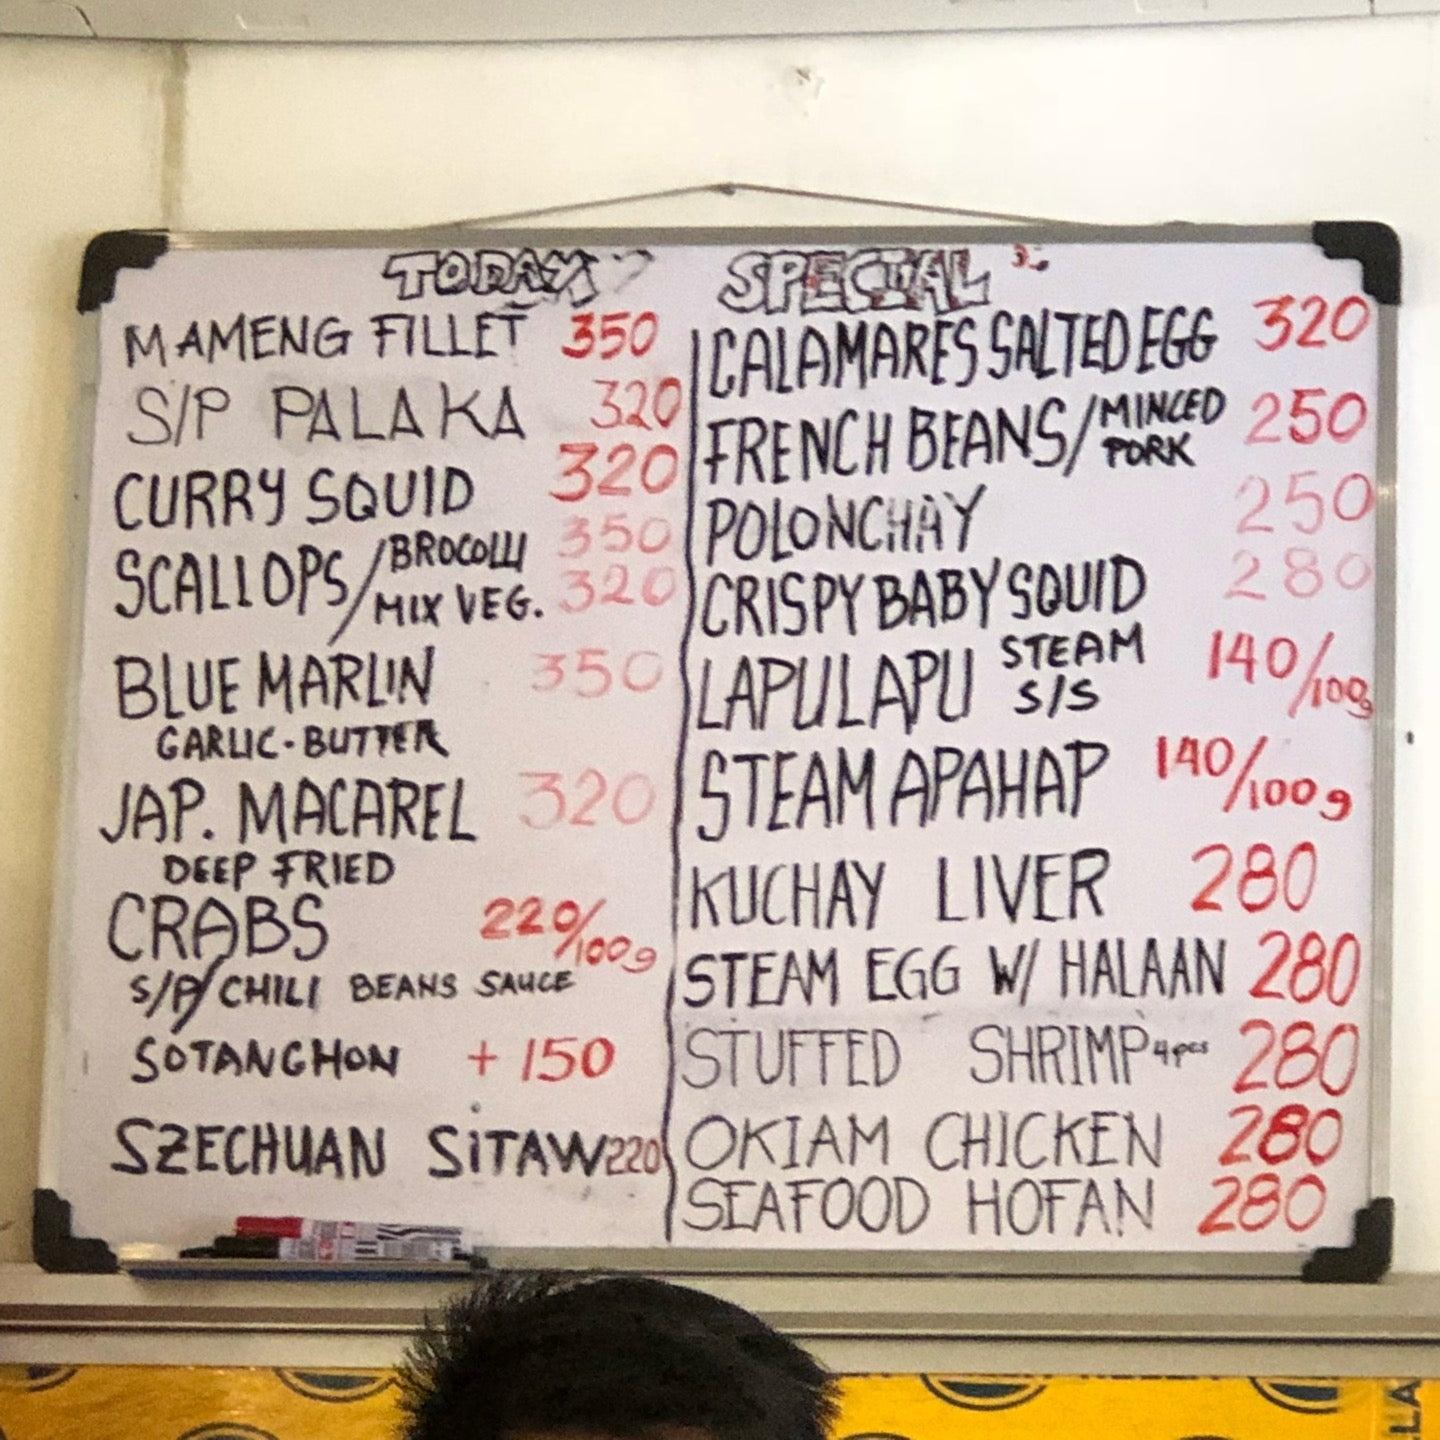 TODAY SPECIAL
MAMENG FILLET 350
S/P PALAKA 320
CURRY SQUID 320
SCALLOPS/BROCOLLI 350
MIX VEG. 320
BLUE MARLIN 350
GARLIC-BUTTER
JAP. MACAREL 320
DEEP FRIED
CRABS 220/100g
S/P/CHILI BEANS SAUCE
SOTANGHON +150
SZECHUAN SITAW 220
CALAMARES SALTED EGG 320
FRENCH BEANS/MINCED PORK 250
POLONCHAY 250
CRISPY BABY SQUID 280
LAPULAPU STEAM S/S 140/100g
STEAM APAHAP 140/100g
KUCHAY LIVER 280
STEAM EGG W/ HALAAN 280
STUFFED SHRIMP 4pcs 280
OKIAM CHICKEN 280
SEAFOOD HOFAN 280